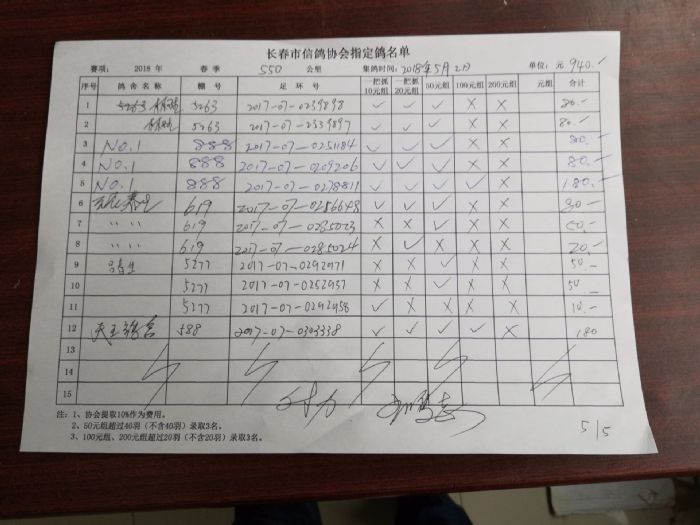 长春市信鸽协会指定鸽名单
赛项: 2018 年 春 季 550 公里 集鸽时间: 2018年5月2日 单位: 元 940.-
序号 鸽 舍 名 称 棚 号 足 环 号 一把抓10元组 一把抓20元组 50元组 100元组 200元组 元组 合计
1 5263 5263 2017-07-0239898 ✓ ✓ ✓ X X 80.-
2 5263 2017-07-2339897 ✓ ✓ ✓ X X 80.-
3 NO.1 888 2017-07-0251184 ✓ ✓ ✓ X X 80.-
4 NO.1 888 2017-07-0209206 ✓ ✓ ✓ X X 80.-
5 NO.1 888 2017-07-0278811 ✓ ✓ ✓ ✓ X 180.-
6 619 2017-07-0256648 ✓ ✓ ✓ X X 80.-
7 〃 〃 619 2017-07-0285023 X X ✓ X X 50.-
8 〃 〃 619 2017-07-0285024 X ✓ X X X 20.-
9 吕春生 5277 2017-07-0292971 X X ✓ X X 50.-
10 5277 2017-07-0252957 X X ✓ X X 50.-
11 5277 2017-07-0292958 ✓ X X X X 10.-
12 588 2017-07-0303338 ✓ ✓ ✓ ✓ X 180
13
14
15
注: 1、协会提取10%作为费用。
2、50元组超过40羽(不含40羽)录取3名。
3、100元组、200元组超过20羽(不含20羽)录取3名。
5/5